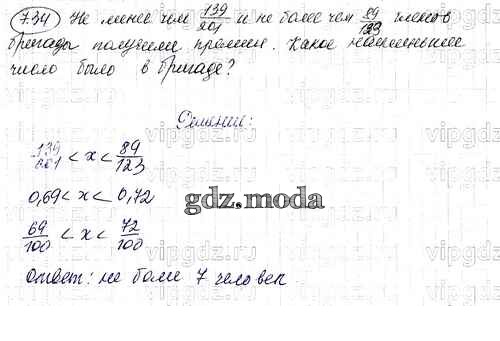 734) Не менее чем 139/201 и не более чем 89/123 членов
бригады получили премии. Какое наименьшее
число было в бригаде?
Решение:
139/201 < x < 89/123
0,69 < x < 0,72
69/100 < x < 72/100
Ответ: не более 7 человек.
gdz.moda